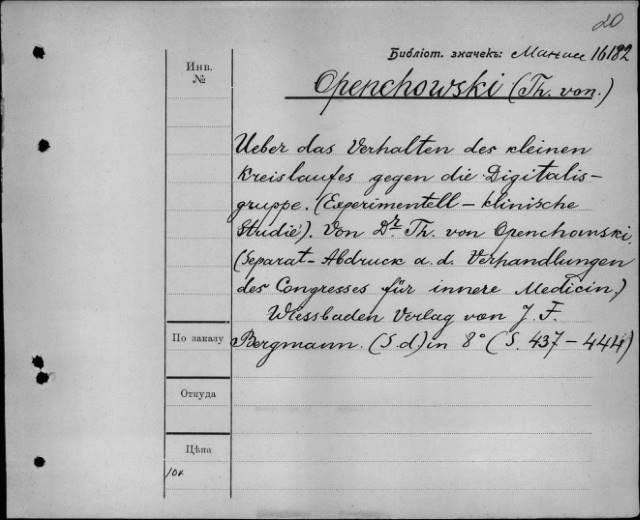 20
Библіот. значекъ: Манас 16182
Инв.
№
Openchowski (Th. von.)
Ueber das Verhalten des kleinen
Kreislaufes gegen die Digitalis-
gruppe. (Experimentell-klinische
Studie). Von Dr. Th. von Openchowski,
(Separat-Abdruck a. d. Verhandlungen
des Congresses für innere Medicin.)
Wiesbaden Verlag von J. F.
По заказу
Bergmann. (S. d) in 8° (S. 437-444)
Откуда
Цѣна
10к